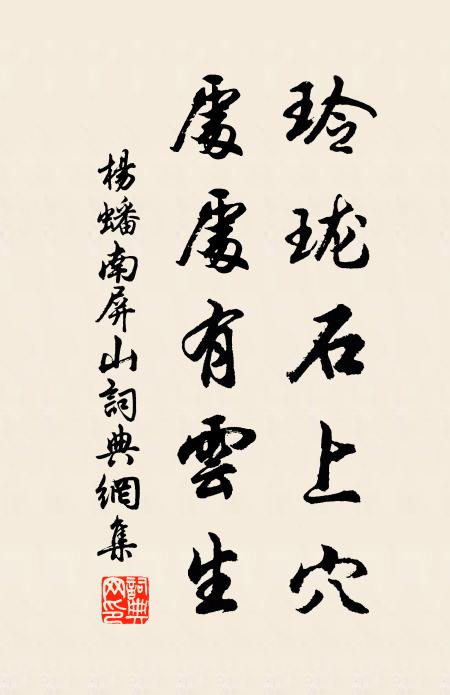 玲珑石上穴
處處有雲生
楊蟠南屏山詞典網集
詞典网印